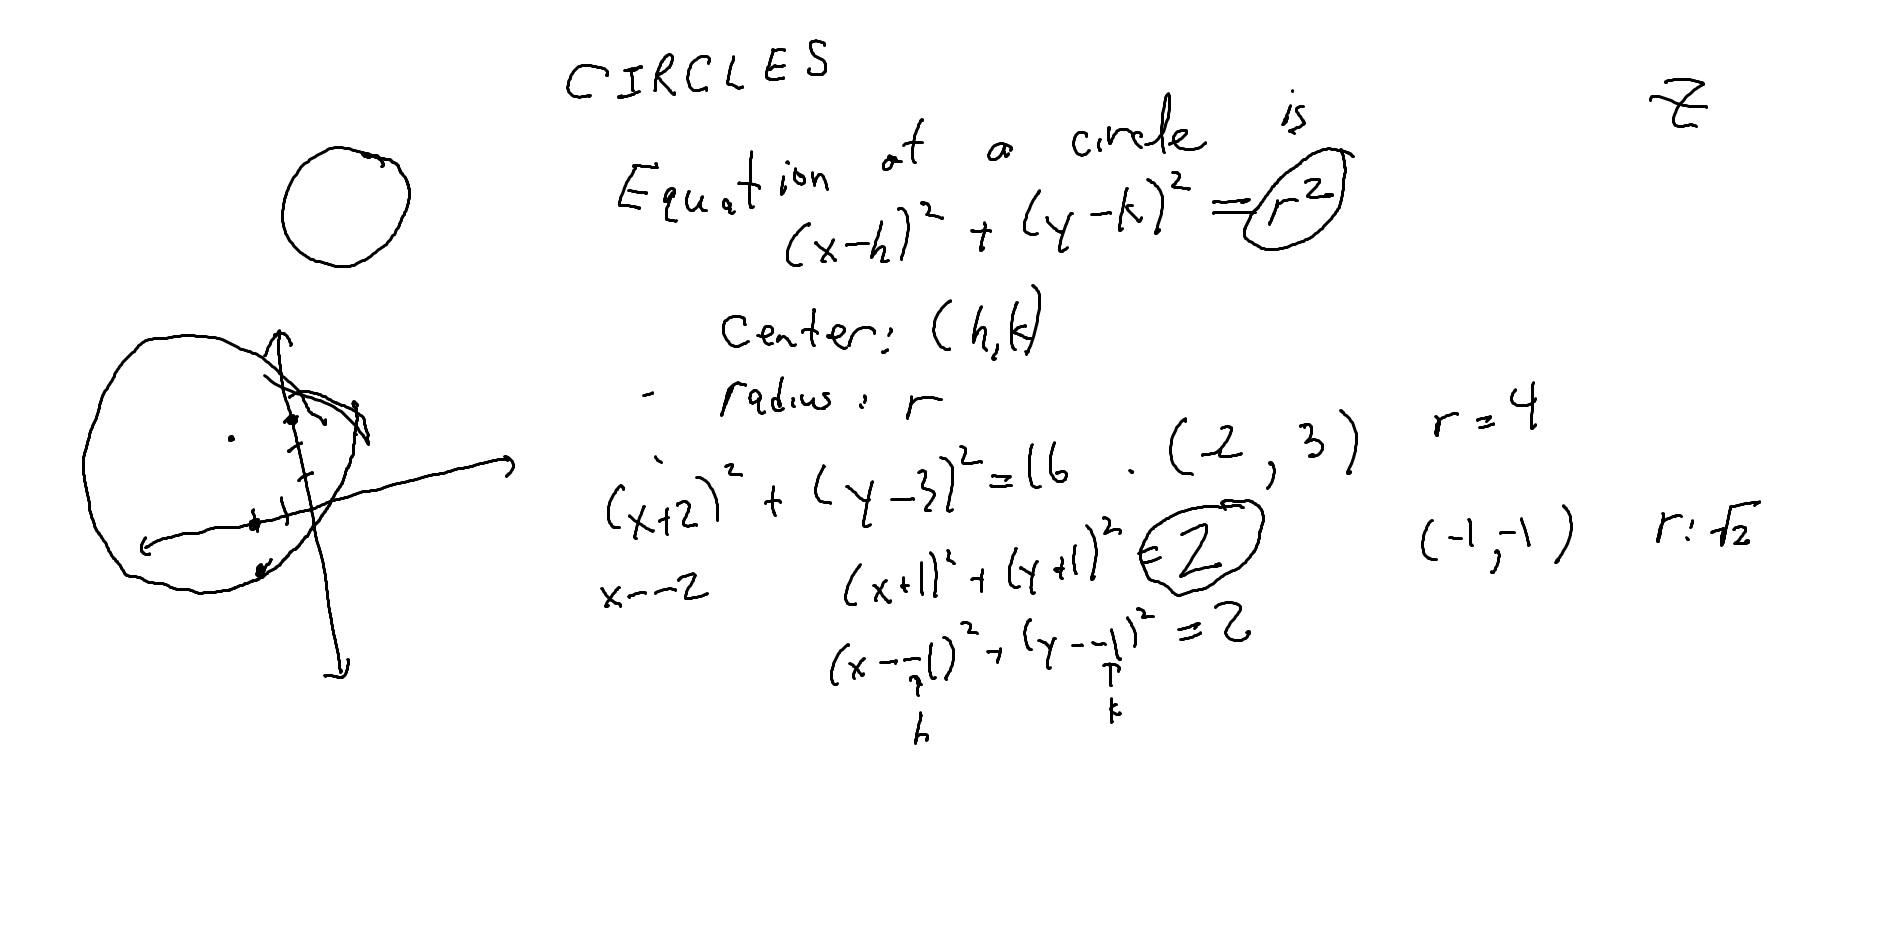 CIRCLES
Z
Equation at a circle is
(x-h)² + (y-k)² = r²
Center: (h,k)
- radius: r
(x+2)² + (y-3)² = 16 . (2, 3) r = 4
(x+1)² + (y+1)² = 2 (-1,-1) r: √2
x--2
(x--1)² + (y--1)² = 2
h k